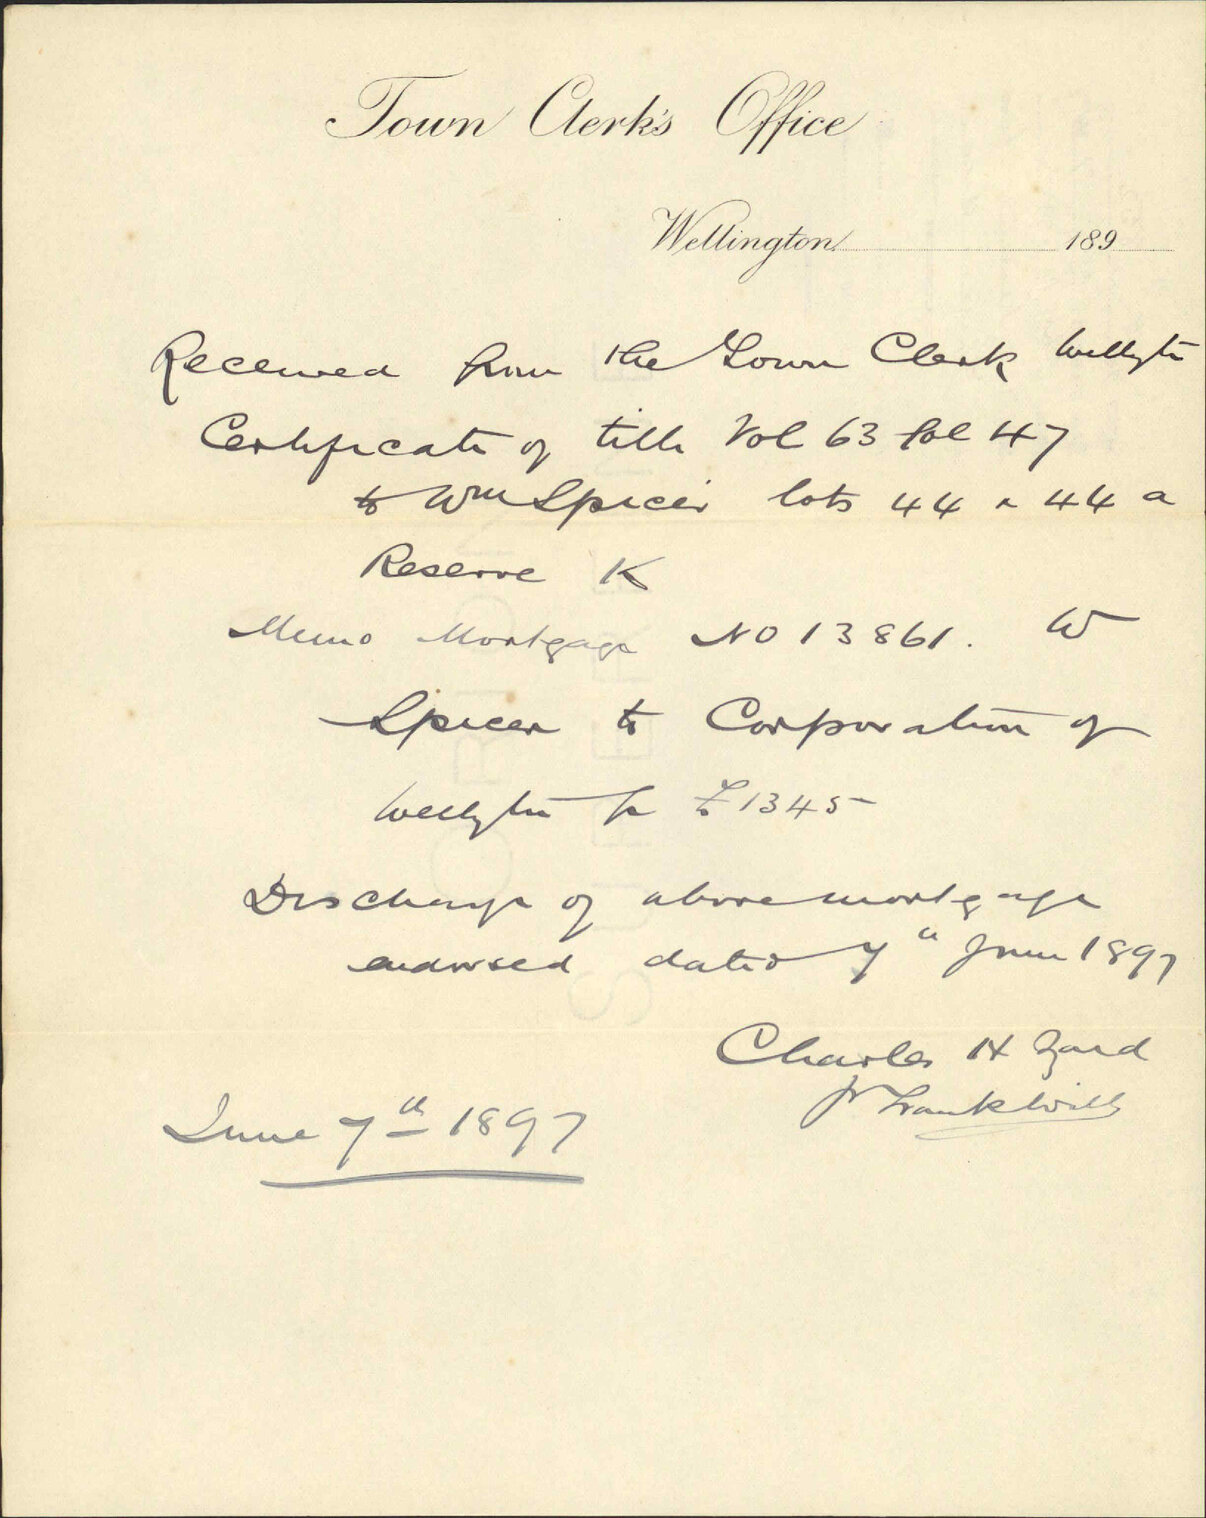 Town Clerk's Office
Wellington 189
Received from the Town Clerk Wellgtn
Certificate of title Vol 63 fol 47
to Wm Spicer lots 44 & 44 a
Reserve K
Memo Mortgage NO 13861. W
Spicer to Corporation of
Wellgtn for £1345
Discharge of above mortgage
endorsed dated 7th June 1897
Charles H Izard
pr Frank Wills
June 7th 1897